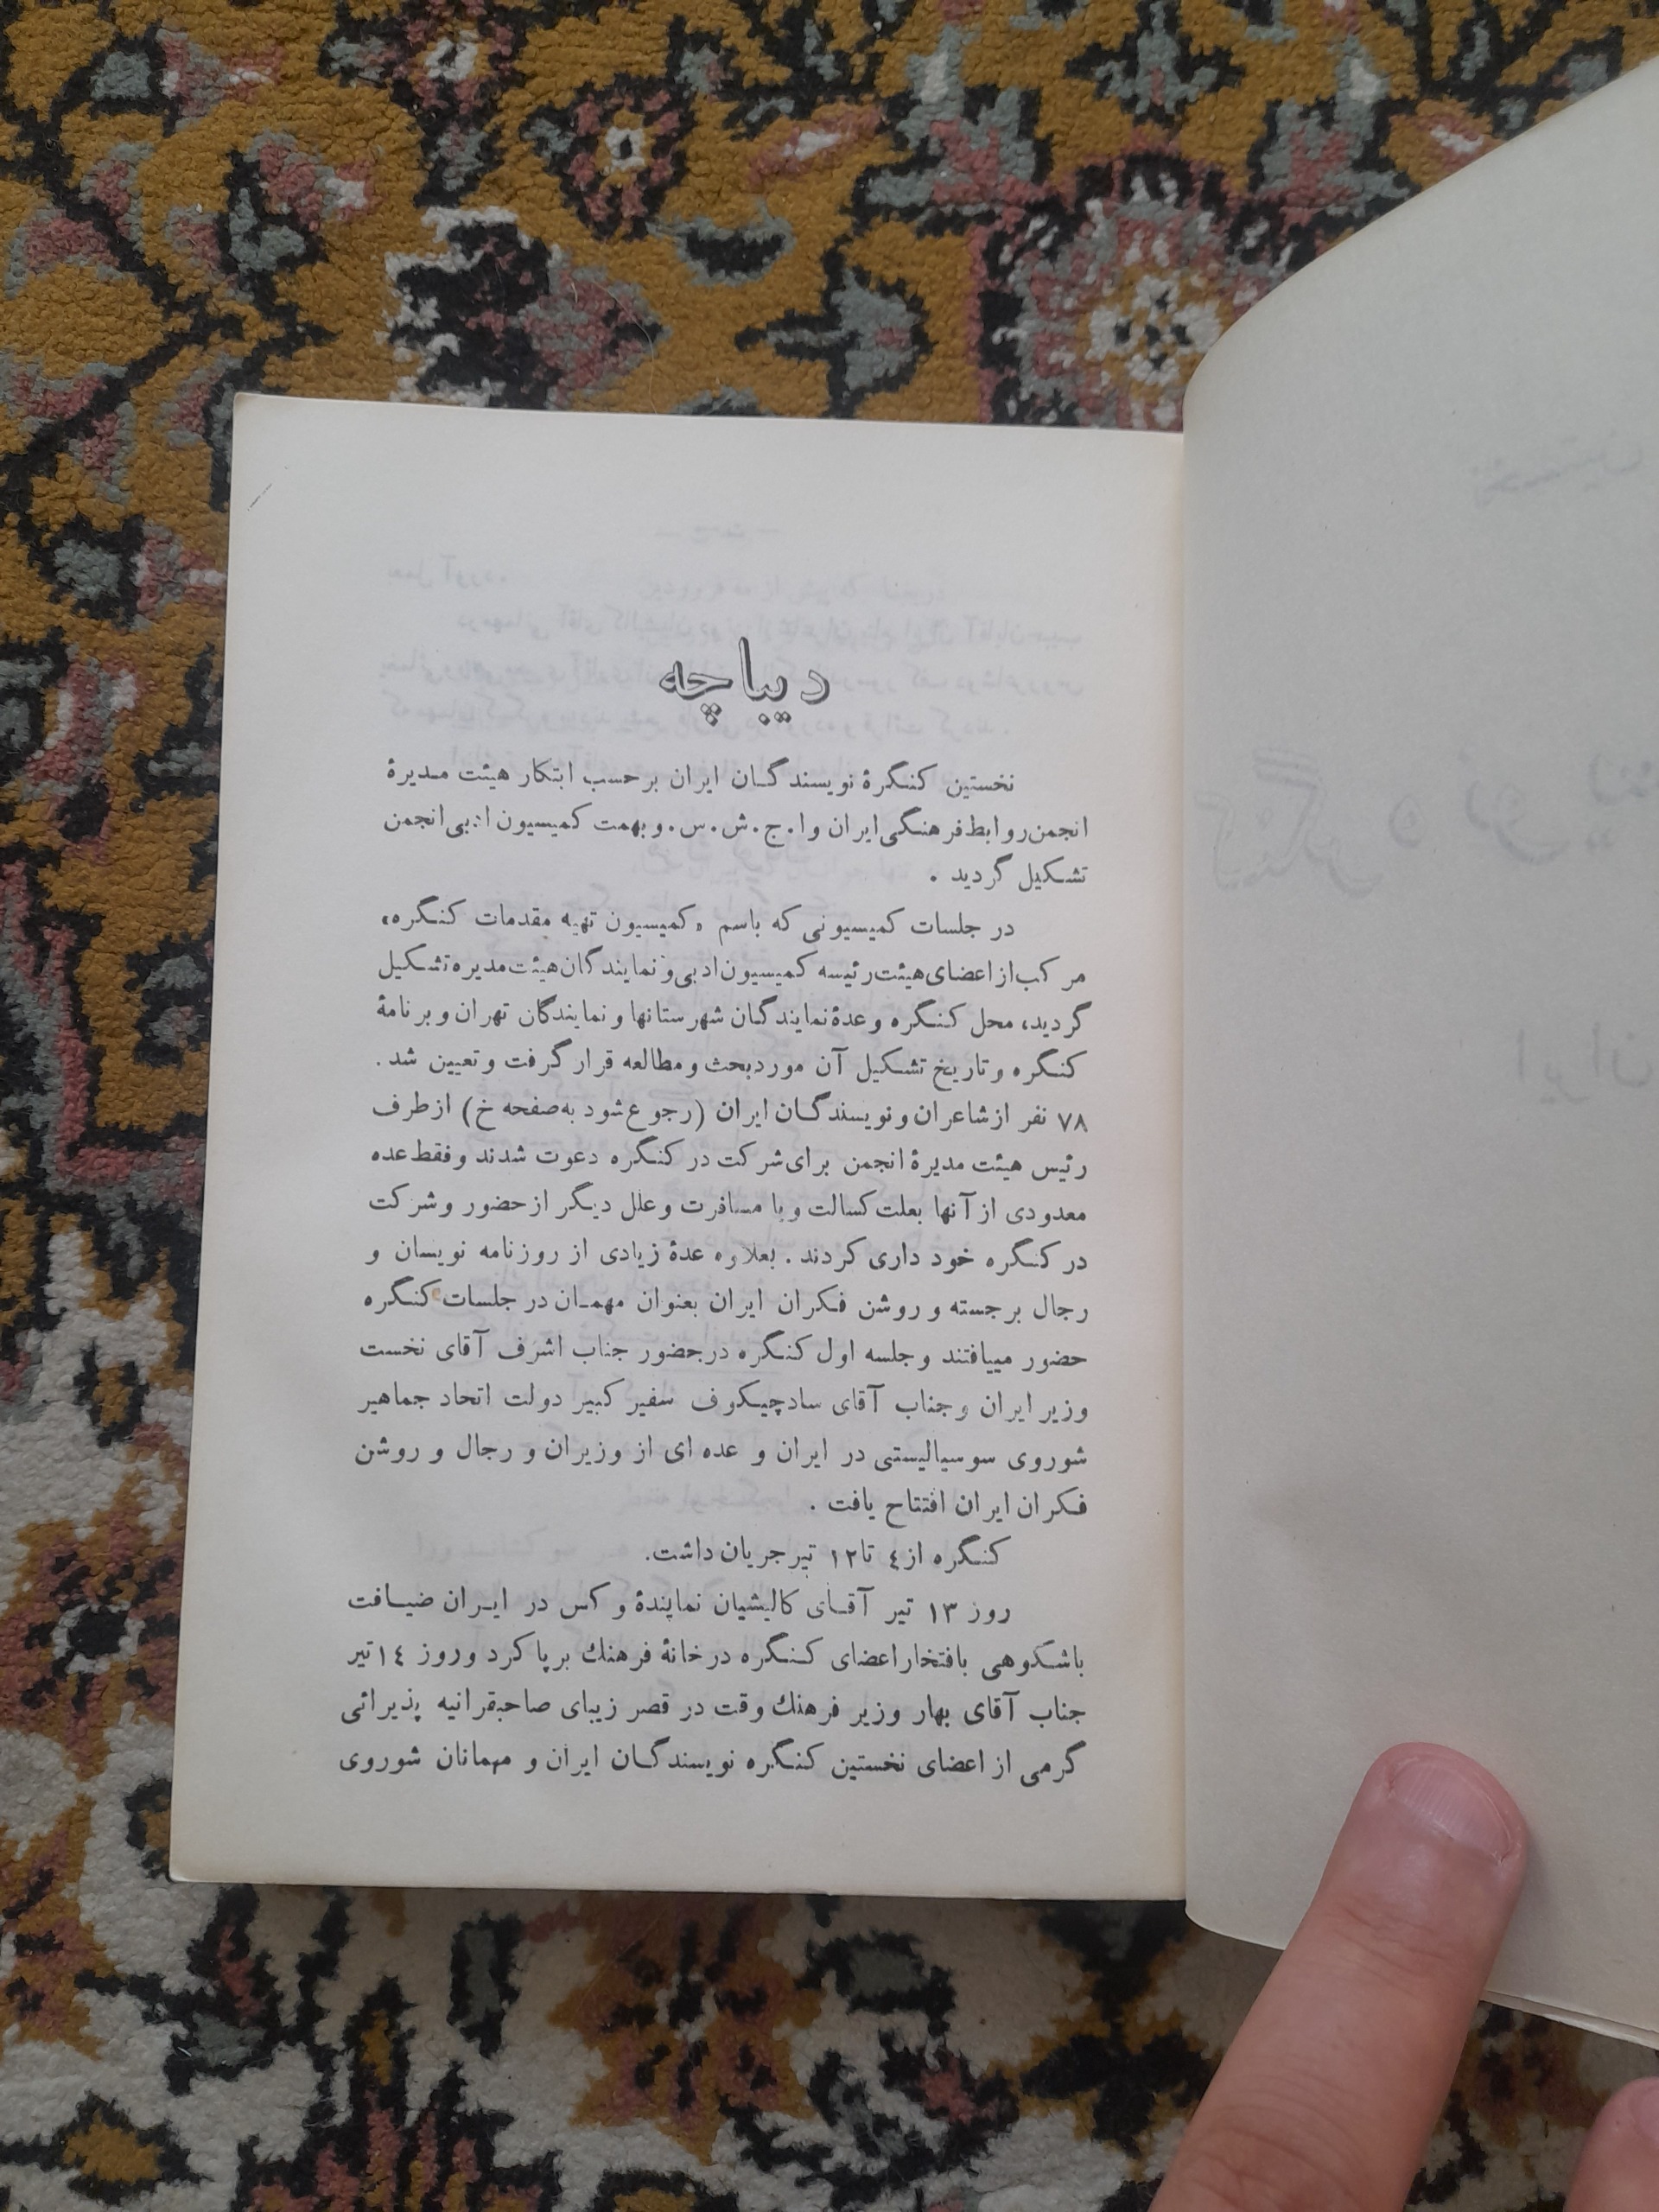 دیباچه
نخستین کنگرهٔ نویسندگان ایران برحسب ابتکار هیئت مدیرهٔ
انجمن روابط فرهنگی ایران و ا. ج. ش. س. و بهمت کمیسیون ادبی انجمن
تشکیل گردید .
در جلسات کمیسیونی که باسم «کمیسیون تهیه مقدمات کنگره»
مرکب از اعضای هیئت رئیسه کمیسیون ادبی و نمایندگان هیئت مدیره تشکیل
گردید، محل کنگره و عدهٔ نمایندگان شهرستانها و نمایندگان تهران و برنامهٔ
کنگره و تاریخ تشکیل آن مورد بحث و مطالعه قرار گرفت و تعیین شد .
۷۸ نفر از شاعران و نویسندگان ایران (رجوع شود به صفحه خ) از طرف
رئیس هیئت مدیرهٔ انجمن برای شرکت در کنگره دعوت شدند و فقط عده
معدودی از آنها بعلت کسالت و یا مسافرت و علل دیگر از حضور و شرکت
در کنگره خود داری کردند . بعلاوه عدهٔ زیادی از روزنامه نویسان و
رجال برجسته و روشن فکران ایران بعنوان مهمان در جلسات کنگره
حضور مییافتند و جلسه اول کنگره در حضور جناب اشرف آقای نخست
وزیر ایران و جناب آقای سادچیکوف سفیر کبیر دولت اتحاد جماهیر
شوروی سوسیالیستی در ایران و عده ای از وزیران و رجال و روشن
فکران ایران افتتاح یافت .
کنگره از ٤ تا ۱۲ تیر جریان داشت.
روز ۱۳ تیر آقای کالیشیان نمایندهٔ وکس در ایران ضیافت
باشکوهی بافتخار اعضای کنگره در خانهٔ فرهنك برپا کرد و روز ۱٤ تیر
جناب آقای بهار وزیر فرهنك وقت در قصر زیبای صاحبقرانیه پذیرائی
گرمی از اعضای نخستین کنگره نویسندگان ایران و مهمانان شوروی